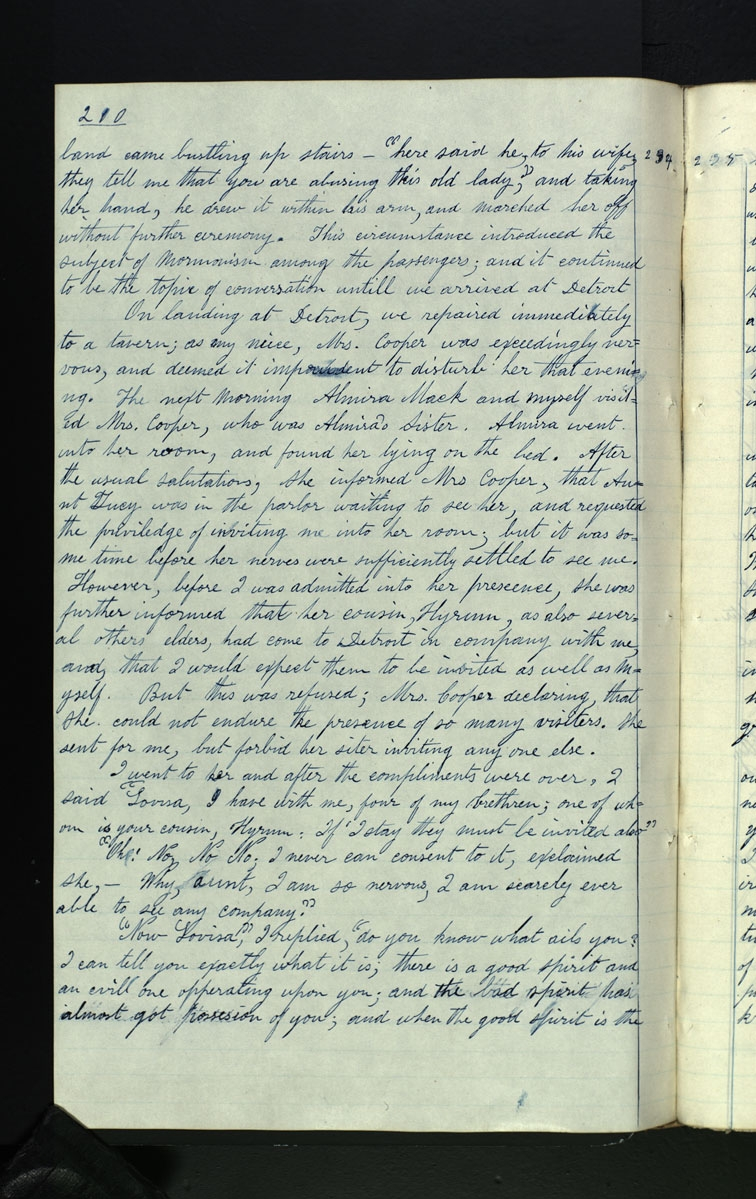 210
band came bustling up stairs — "here said he, to his wife, 234 235
they tell me that you are abusing this old lady," and taking
her hand, he drew it within his arm, and marched her off
without further ceremony. This circumstance introduced the
subject of Mormonism among the passengers; and it continued
to be the topic of conversation untill we arrived at Detroit
On landing at Detroit, we repaired immediately
to a tavern; as my neice, Mrs. Cooper was exceedingly ner=
vous, and deemed it imprudent to disturb her that eveni=
ng. The next morning Almira Mack and myself visit=
ed Mrs. Cooper, who was Almira's Sister. Almira went
into her room, and found her lying on the bed. After
the usual salutations, she informed Mrs Cooper, that Au=
nt Lucy was in the parlor waiting to see her, and requested
the priviledge of inviting me into her room; but it was so=
me time before her nerves were sufficiently settled to see me.
However, before I was admitted into her prescence, she was
further informed that her cousin, Hyrum, as also sever=
al other elders, had come to Detroit in company with me,
and, that I would expect them to be invited as well as m=
yself. But this was refused; Mrs. Cooper declaring, that
she could not endure the presence of so many visiters. She
sent for me, but forbid her siter inviting any one else.
I went to her and after the compliments were over, I
said "Lovisa, I have with me, four of my brethren; one of wh=
om is your cousin, Hyrum: If I stay they must be invited also"
"Oh! No, No No; I never can consent to it, exclaimed
she,— Why, aunt, I am so nervous, I am scarcly ever
able to see any company."
"Now Lovisa," I replied, "do you know what ails you?
I can tell you exactly what it is; there is a good spirit and
an evill one opperating upon you; and the bad spirit has
almost got possesion of you; and when the good spirit is the